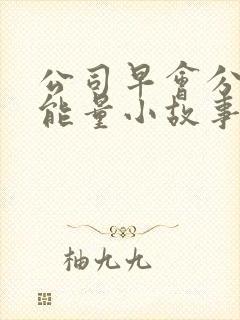 公司早會分
能量小故事
柚九九